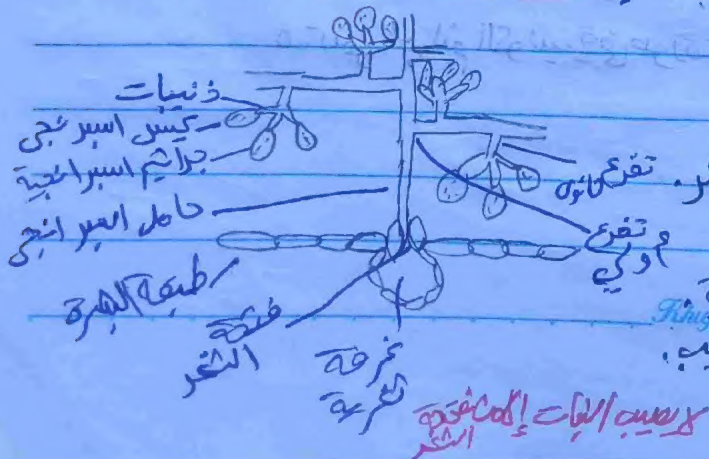 ذنيبات
كيس اسبرانجي
جراثيم اسبرانجية
حامل اسبرانجي
طبقة البشرة
فتحة
الثغر
غرفة
ثغرية
تفرع
ثانوي
تفرع
أولي
لا يصيب النبات إلا من فتحة
الثغر